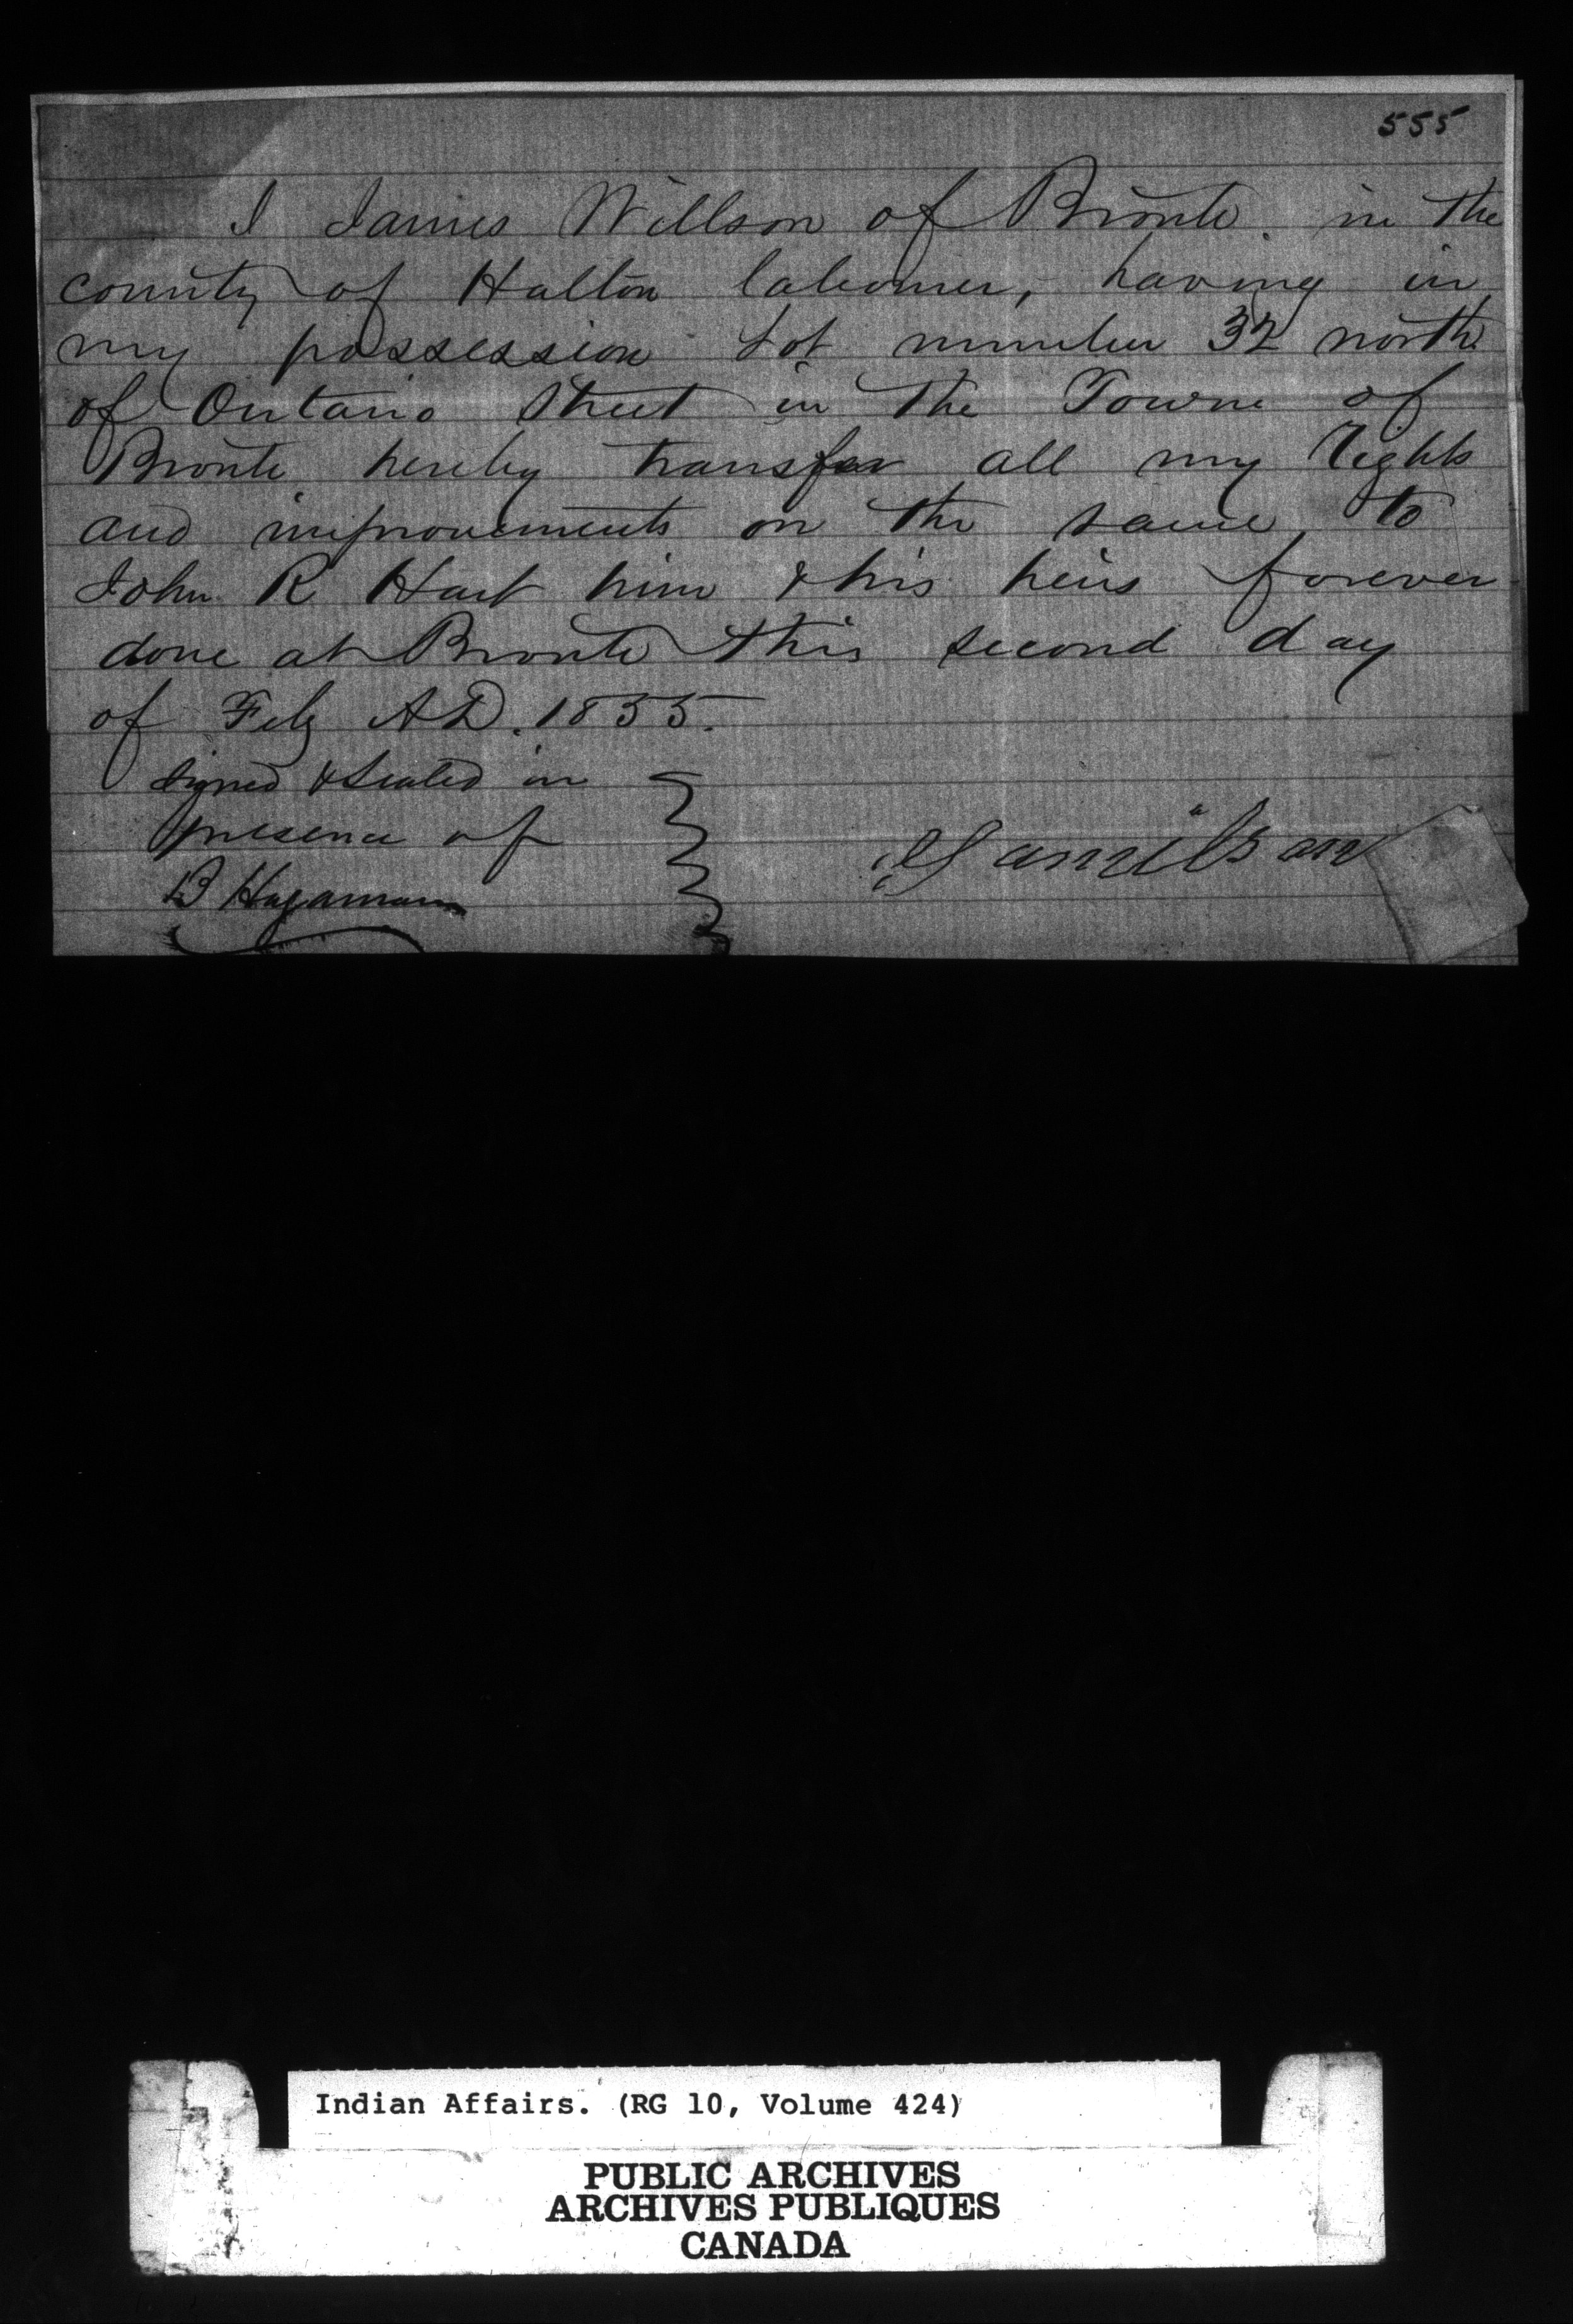 555
I James Willson of Bronte. in the
county of Halton labourer, having in
my possession Lot number 32 north
of Ontario Street in the Towne of
Bronte hereby transfer all my Rights
and improvements on the same to
John R Hart him & his heirs forever
done at Bronte this second day
of Feby AD. 1855.
signed & Sealed in
presence of
B Hagaman
Indian Affairs. (RG 10, Volume 424)
PUBLIC ARCHIVES
ARCHIVES PUBLIQUES
CANADA